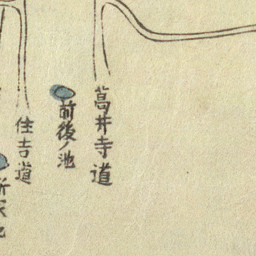 葛井寺道
前後ノ池
住吉道